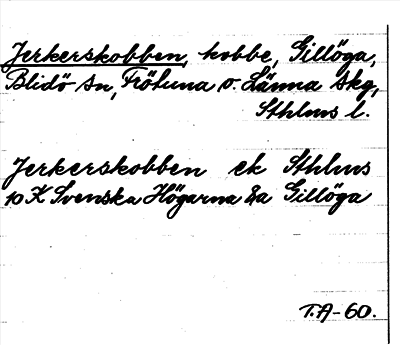 Jerkerskobben, kobbe, Gillöga,
Blidö sn, Frötuna o. Länna skg,
Sthlms l.
Jerkerskobben ek Sthlms
10 K Svenska Högarna 2a Gillöga
T.A-60.